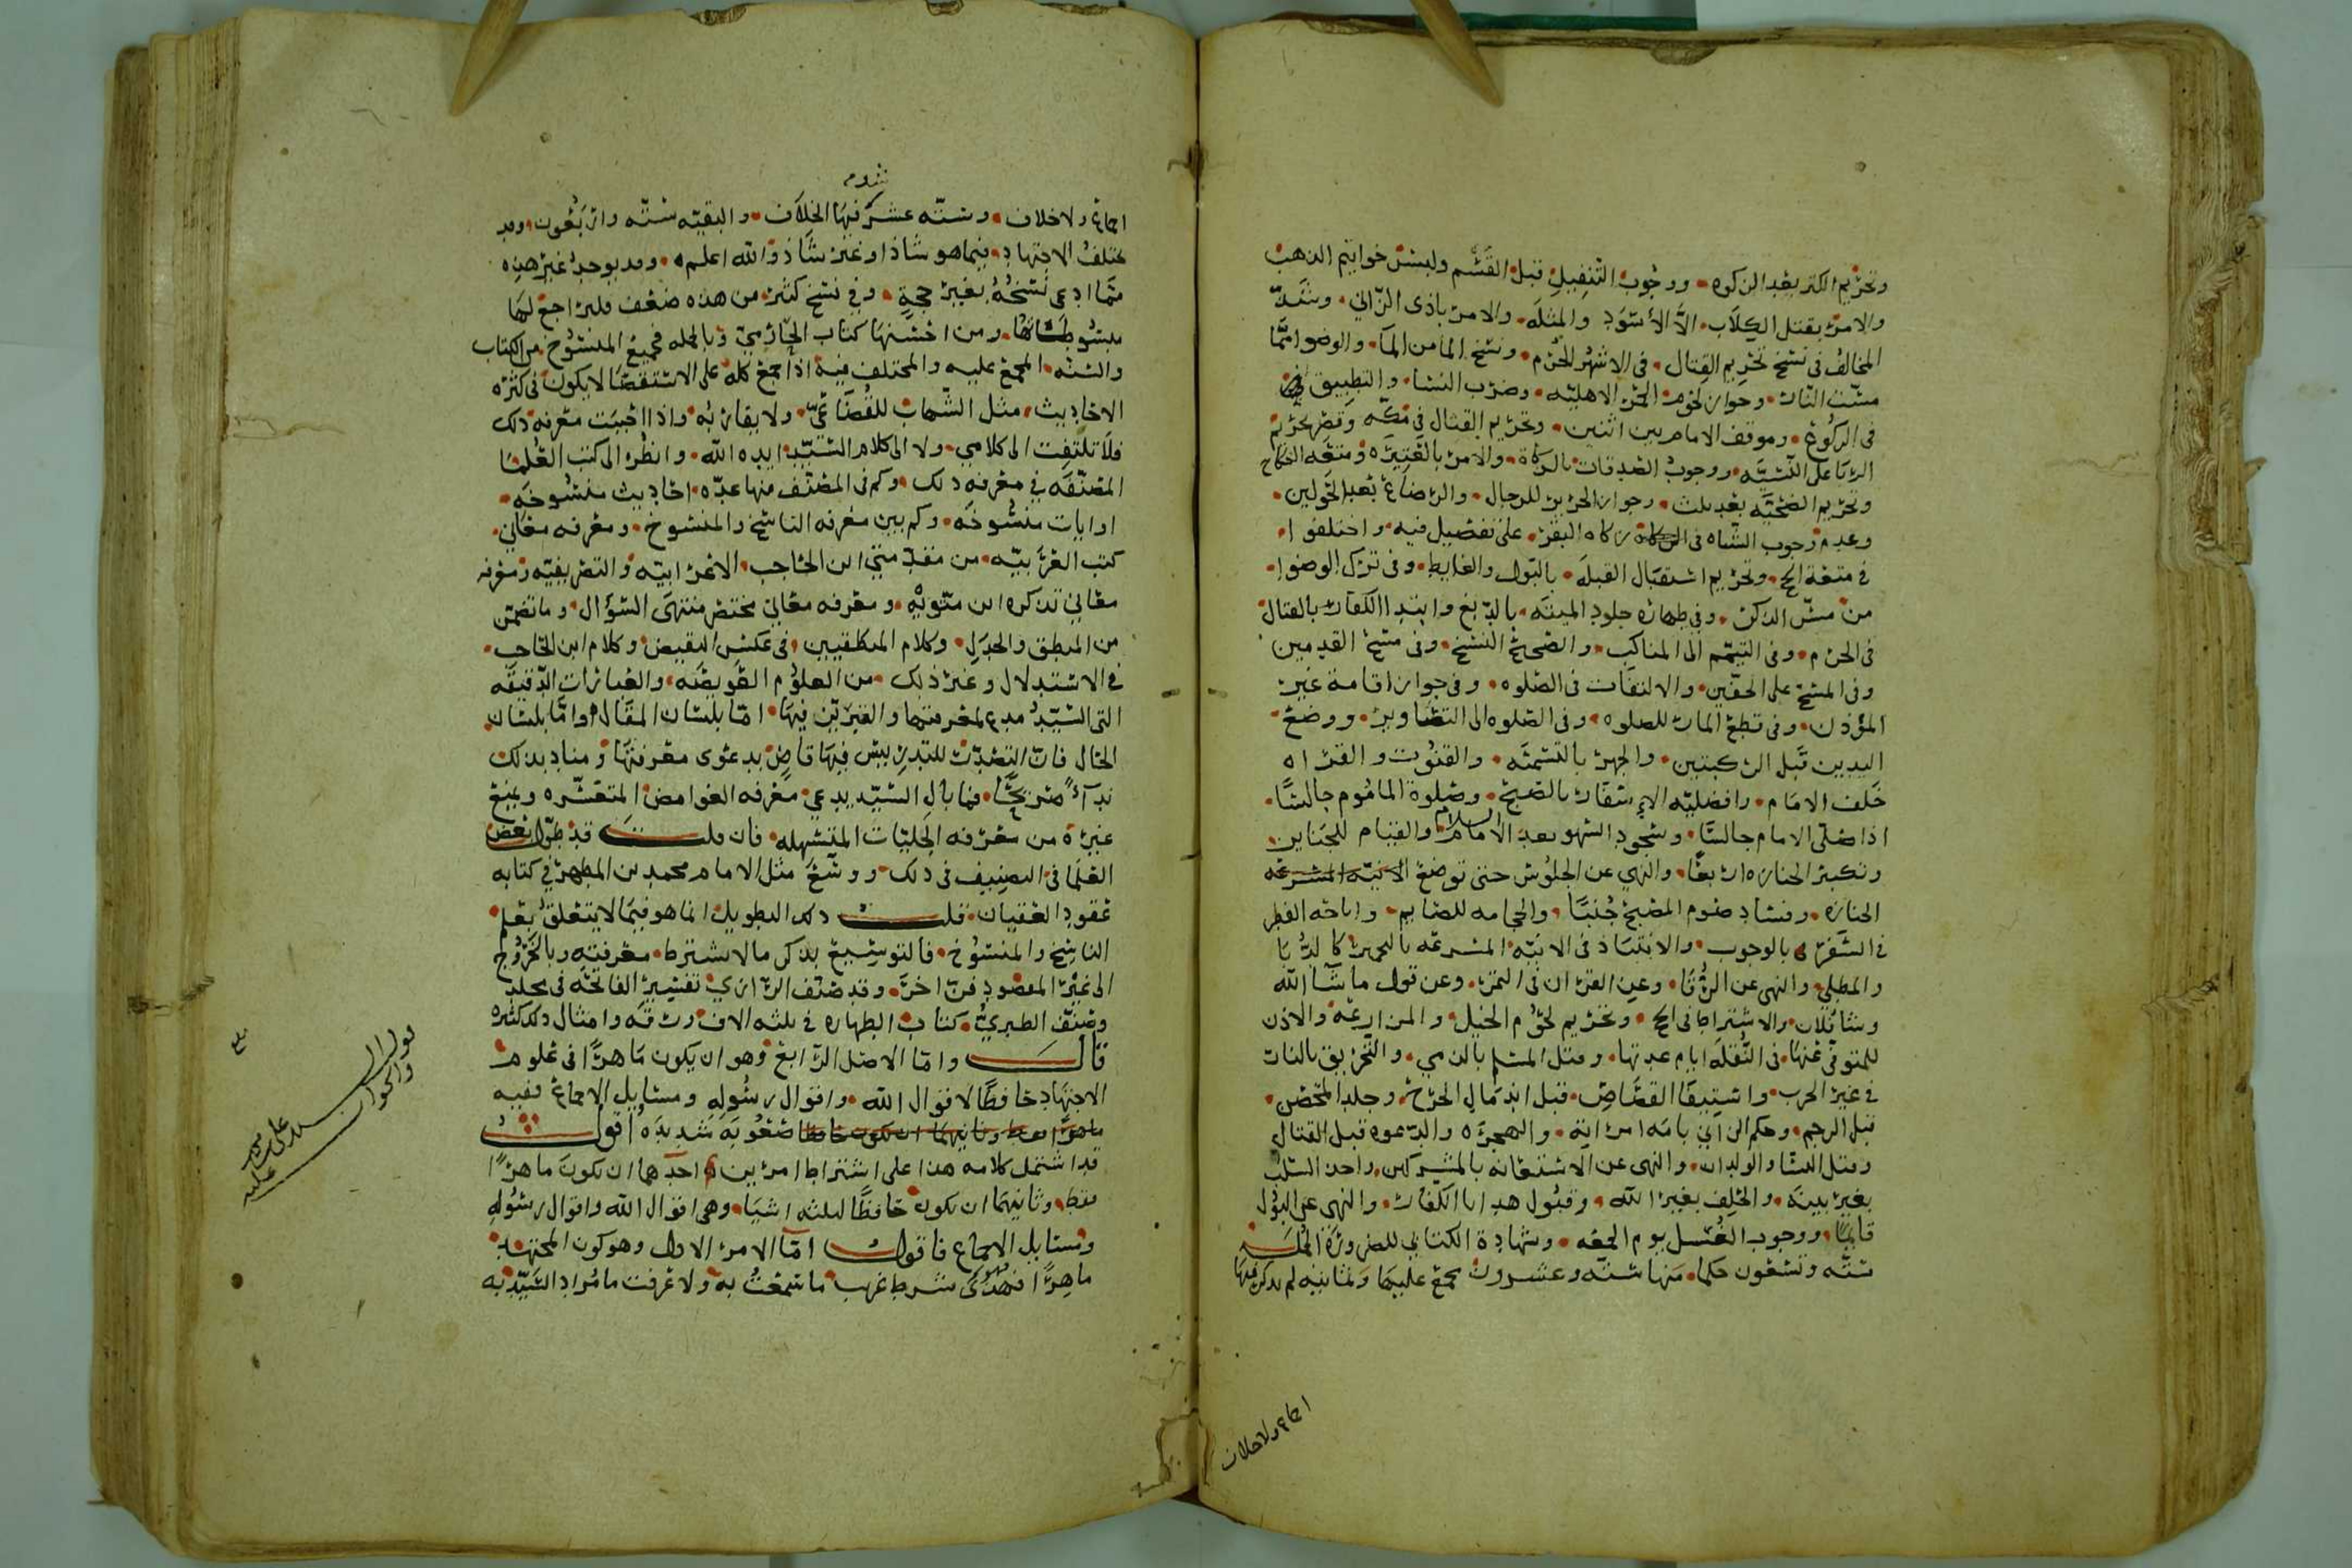 وتحريم الكتر بعد الزكوه ووجوب التنفيل قبل القسم ولبس خواتيم الذهب
والامر بقتل الكلاب الا الأسود والمثله والامر باذى الزاني وشذ
المخالف في نسخ تحريم القتال في الاشهر الحرم ونسخ الما من المآ والوضو امما
مست النار وجواز لحوم الحمر الاهليه وضرب النسا والتطبيق
في الركوع وموقف الامام بين اثنين وتحريم القتال في مكه وقصر تحريم
الربا على النسيه ووجوب الصدقات بالزكاة والامر بالعتيره ومتعه النكاح
وتحريم الضحيه بعد ثلث وجواز الحرير للرجال والرضاع بعد الحولين
وعدم وجوب الشاه في زكاه البقر على تفصيل فيه واختلفوا
في متعة الحج وتحريم استقبال القبله بالبول والغايط وفي ترك الوضوا
من مس الذكر وفي طهاره جلود الميته بالدبغ وابتدا الكفار بالقتال
في الحرم وفي التيمم الى المناكب والصحيح النسخ وفي مسح القدمين
وفي المسح على الخفين والالتفات في الصلوه وفي جواز اقامة غير
المؤذن وفي قطع المار للصلوه وفي الصلوه الى التصاوير ووضع
اليدين قبل الركبتين والجهر بالتسميه والقنوت والقراه
خلف الامام وافضليه الإسفار بالصبح وصلوة الماموم جالسًا
اذا صلى الامام جالسًا وسجود السهو بعد السلام والقيام للجنايز
وتكبير الجنازه اربعًا والنهي عن الجلوس حتى توضع
الجنازه وفساد صوم المصبح جُنبًا والحجامه للصايم واباحه الفطر
في السفر بالوجوب والانتباذ في الانيه المسرعه بالخمر كالدُبا
والمطلي والنهي عن الرُقا وعن القران في التمر وعن قول ماشآ الله
وشا فلان والاشتراط في الحج وتحريم لحوم الخيل والمزارعه والاذن
للمتوفى عنها في النُقله ايام عدتها وقتل المسلم بالذمي والتحريق بالنار
في غير الحرب واستيفا القصاص قبل اندمال الجرح وجلد المحصن
قبل الرجم وحكم الزاني بامه امراته والهجره والدعوه قبل القتال
وقتل النسا والولدان والنهى عن الاستعانه بالمشركين واخذ السلب
بغير بينه والحلف بغير الله وقبول هدايا الكفار والنهي عن البول
قايمًا ووجوب الغُسل يوم الجمعه وشهادة الكتابي للضروره
سته وتسعون حكما منها سته وعشرون مجمع عليها وثمانيه لم يذكر فيها
اجماع ولاخلاف
اجماع ولاخلاف وسته عشر فيها الخلاف والبقيه سته واربعون وقد
يختلف الاجتهاد فيما هو شاذ او غير شاذ والله اعلم وقد يوجد غير هذه
مما ادعي نسخه بغير حجةٍ وفي نسخ كثير من هذه ضعف فليراجع لها
مبسوطاتها ومن احسنها كتاب الحازمي وبالجمله فجميع المنسوخ من الكتاب
والسنه المجمع عليه والمختلف فيه اذا جمع كله على الاستقصا لايكون في كثره
الاحاديث مثل الشهاب للقضاعي ولا يقاربه واذا احببت معرفه ذلك
فلا تلتفت الى كلامي ولا الى كلام السيد ايده الله وانظر الى كتب العلما
المصنفه في معرفه ذلك وكم في المصنف منها عده احاديث منسوخه
او ايات منسوخه وكم بين معرفه الناسخ والمنسوخ ومعرفه معاني
كتب العربيه من مقدمتي ابن الحاجب الاعرابيه والتصريفيه ومعرفه
معاني تذكره ابن متويه ومعرفه معاني مختصر منتهى السؤال وما تضمن
من المنطق والجدل وكلام المنطقيين في عكس النقيض وكلام ابن الحاجب
في الاستدلال وغير ذلك من العلوم العويصه والعبارات الدقيقه
التي السيد مدع لمعرفتها والتبريز فيها اما بلسان المقال واما بلسان
الحال فان التصدر للتدريس فيها قاض بدعوى معرفتها ومناد بذلك
ندآءً صريحًا فما بال السيد يدعي معرفه الغوامض المتعسره ويمنع
غيره من معرفه الجليات المتسهله فان قلت قد طول بعض
العلما في التصنيف في ذلك ووسع مثل الامام محمد بن المطهر في كتابه
عقود العقيان قلت ذلك التطويل انما هو فيما لا يتعلق بعلم
الناسخ والمنسوخ فالتوسيع بذكر مالا يشترط معرفته وبالخروج
الى غير المقصود فن اخر وقد صنف الرازي تفسير الفاتحه في مجلد
وصنف الطبري كتاب الطهاره في ثلثه الاف ورقه وامثال ذلك كثيره
قال واما الاصل الرابع وهو ان يكون ماهرًا في علوم
الاجتهاد حافظًا لاقوال الله واقوال رسوله ومسايل الاجماع ففيه
صعوبه شديده اقول
قد اشتمل كلامه هذا على اشتراط امرين احدهما ان يكون ماهرًا
فقط وثانيهما ان يكون حافظًا لثلثه اشيا وهي اقوال الله واقوال رسوله
ومسايل الاجماع فاقول اما الامر الاول وهو كون المجتهد
ماهرًا فهذا شرط غريب ما سمعت به ولا عرفت ما مُراد السيد به